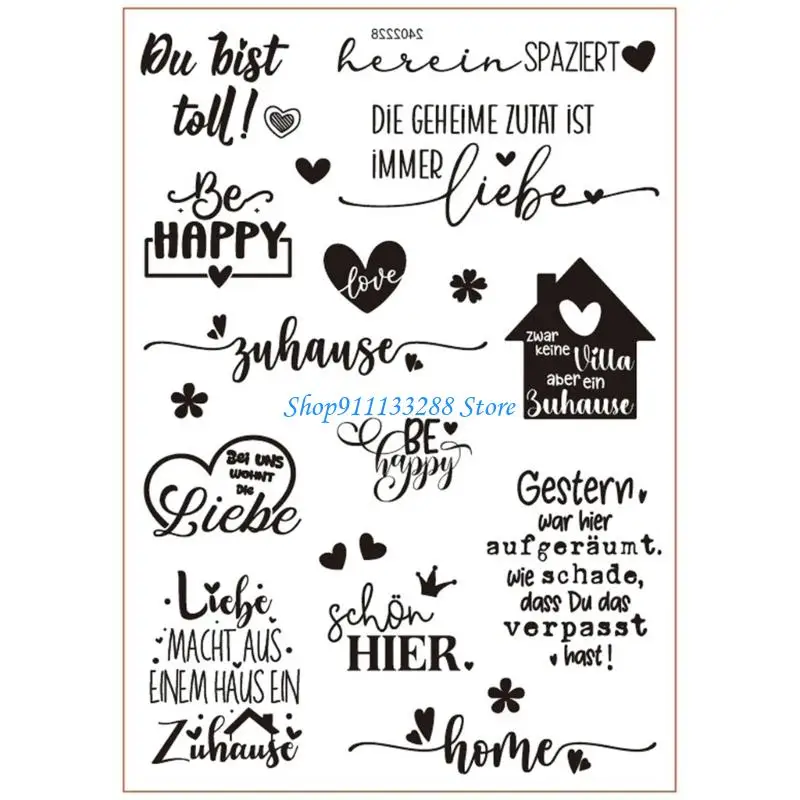 2402228
Du bist
toll!
herein SPAZIERT
DIE GEHEIME ZUTAT iST
iMMER
liebe
Be
HAPPY
love
zuhause
zwar
keine Villa
aber ein
Zuhause
Shop911133288 Store
BE
happy
Bei UNS
WOHNT
Die
Liebe
Gestern
war hier
aufgeräumt.
wie schade,
dass Du das
verpasst
hast!
Liebe
MACHT AUS
EINEM HAUS EIN
Zuhause
schön
HIER.
home